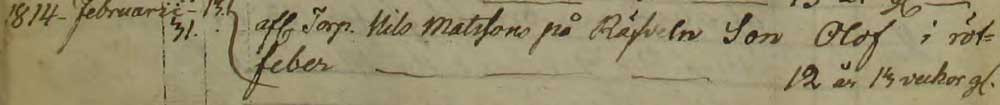 1814 - februarii 31. afl. Torp. Nils Matssons på Räfveln Son Olof i röt=
feber — — — 12 år 13 veckor gl.